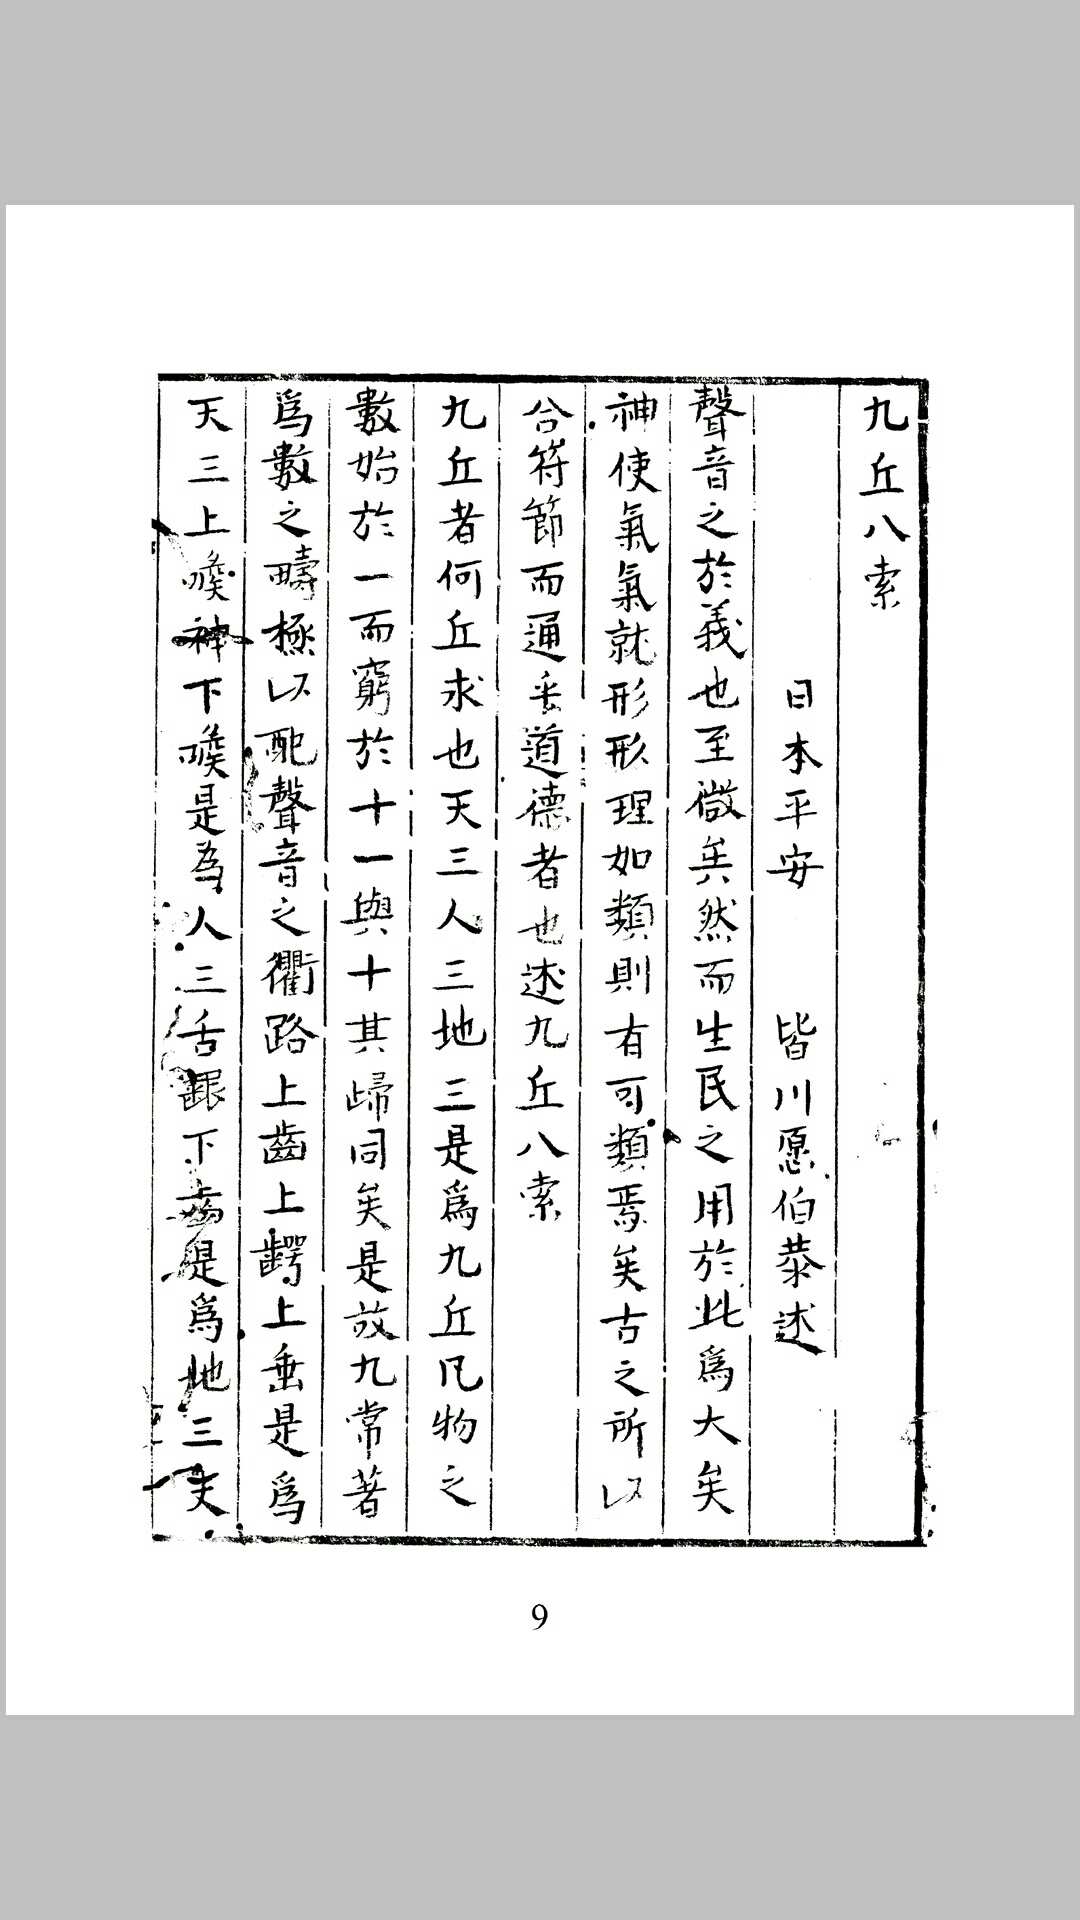 九丘八索
日本平安　皆川愿伯恭述
聲音之於義也至微矣然而生民之用於此爲大矣
神使氣氣就形形理如類則有可類焉矣古之所以
合符節而通乎道德者也述九丘八索
九丘者何丘求也天三人三地三是爲九丘凡物之
數始於一而窮於十一與十其歸同矣是故九常著
爲數之疇極以配聲音之衢路上齒上齶上垂是爲
天三上喉神下喉是為人三舌齦下齒是爲地三夫
9